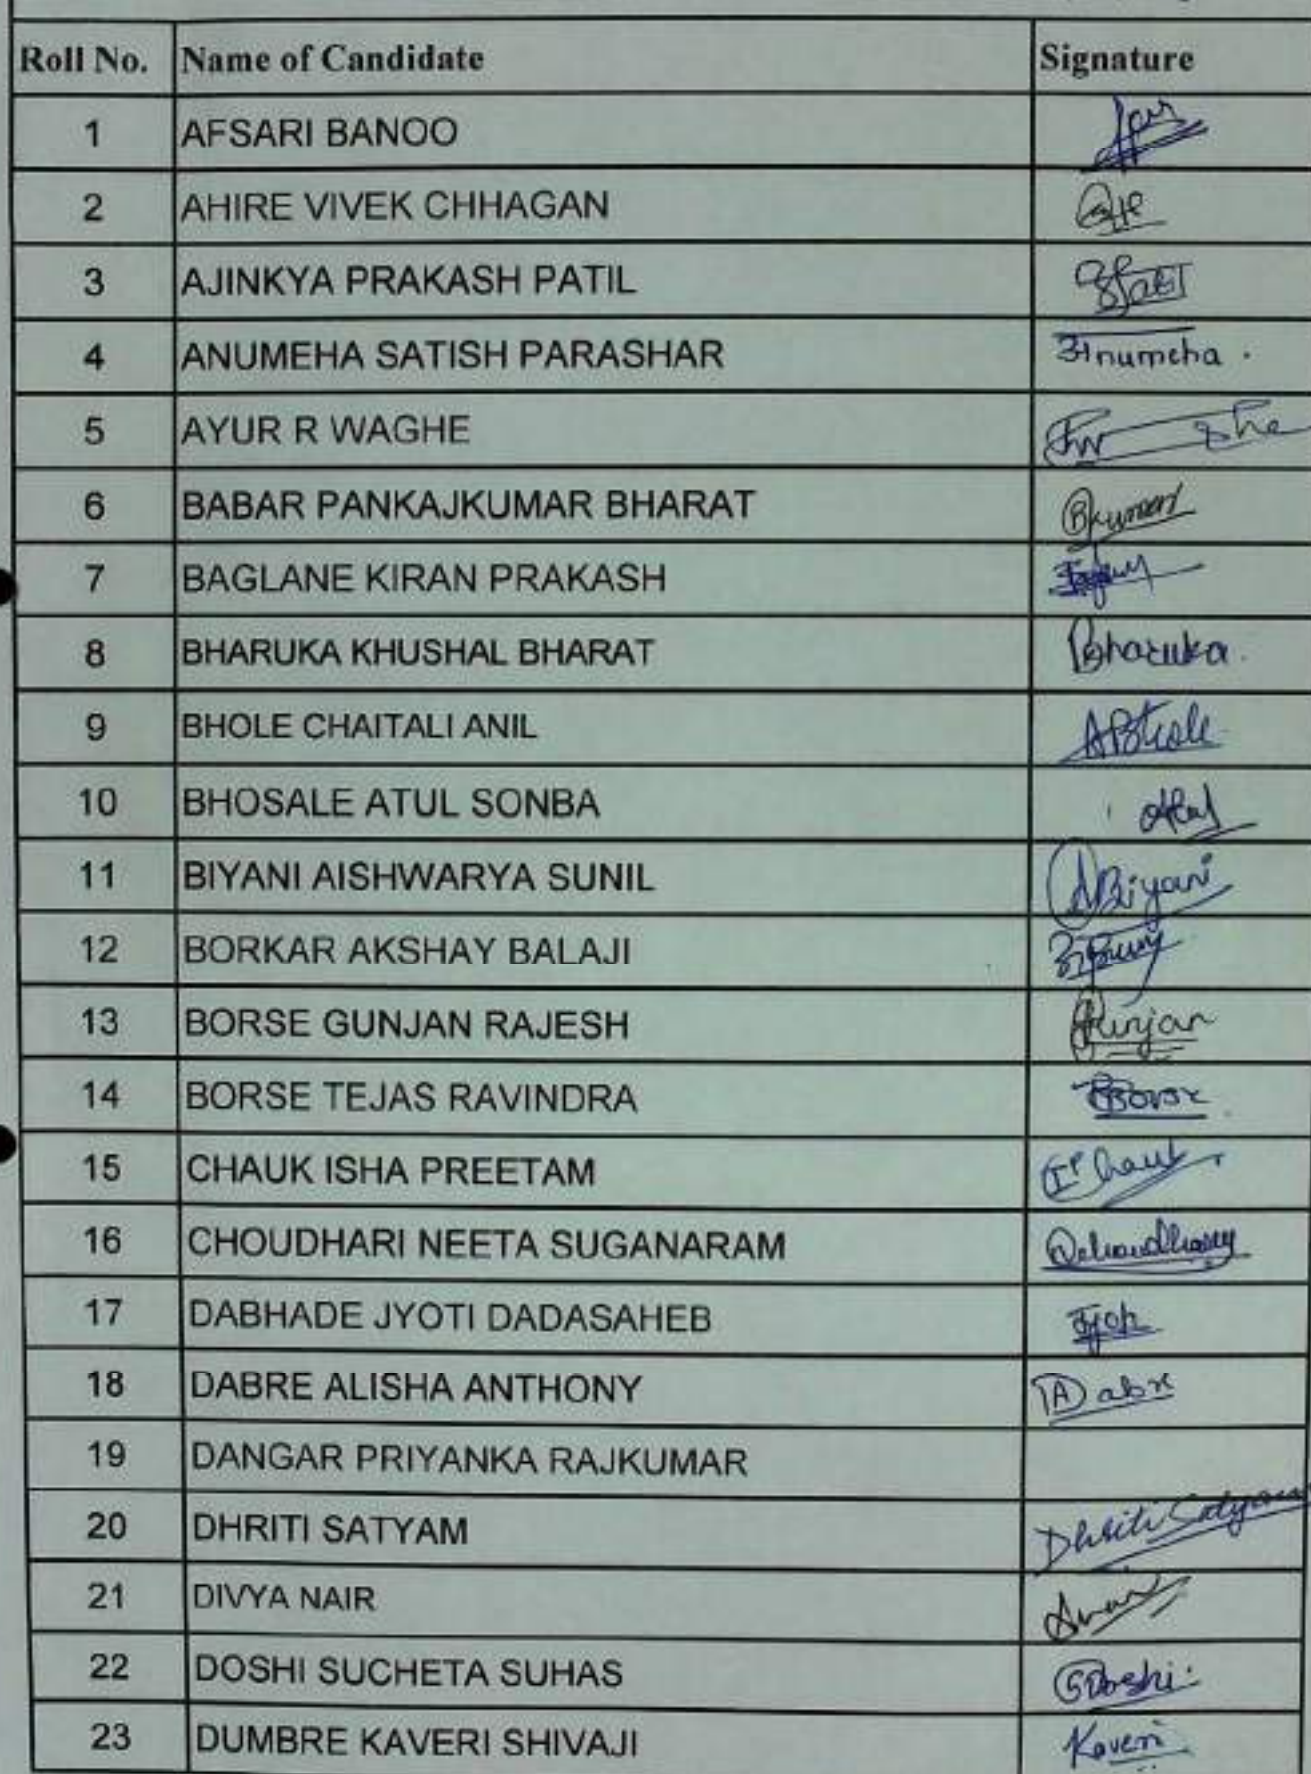 Roll No. Name of Candidate Signature
1 AFSARI BANOO
2 AHIRE VIVEK CHHAGAN
3 AJINKYA PRAKASH PATIL
4 ANUMEHA SATISH PARASHAR अnumeha .
5 AYUR R WAGHE
6 BABAR PANKAJKUMAR BHARAT Bkumar
7 BAGLANE KIRAN PRAKASH
8 BHARUKA KHUSHAL BHARAT Bharuka.
9 BHOLE CHAITALI ANIL ABhole
10 BHOSALE ATUL SONBA
11 BIYANI AISHWARYA SUNIL ABiyani
12 BORKAR AKSHAY BALAJI
13 BORSE GUNJAN RAJESH Gunjan
14 BORSE TEJAS RAVINDRA
15 CHAUK ISHA PREETAM
16 CHOUDHARI NEETA SUGANARAM
17 DABHADE JYOTI DADASAHEB
18 DABRE ALISHA ANTHONY
19 DANGAR PRIYANKA RAJKUMAR
20 DHRITI SATYAM Dhriti Satyam
21 DIVYA NAIR
22 DOSHI SUCHETA SUHAS SDoshi
23 DUMBRE KAVERI SHIVAJI Kaveri